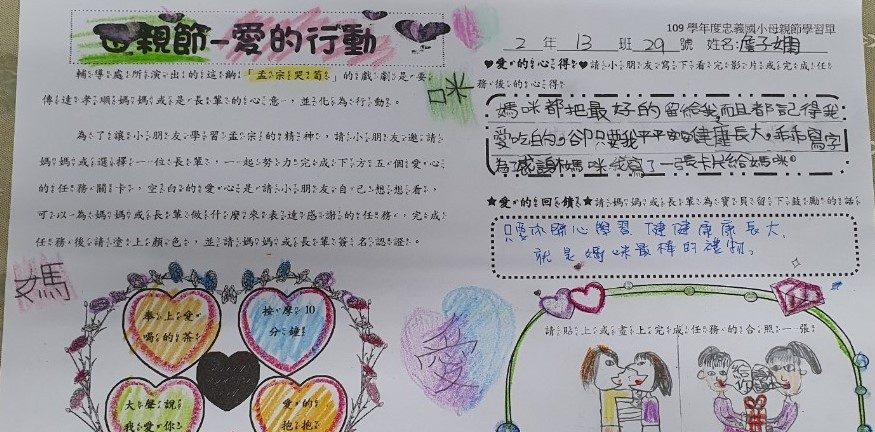 109 學年度忠義國小母親節學習單
母親節–愛的行動
2 年 13 班 29 號 姓名:
輔導處所演出的這齣「孟宗哭筍」的戲劇是要
傳達孝順媽媽或是長輩的心意,並化為行動。
為了讓小朋友學習孟宗的精神,請小朋友邀請
媽媽或選擇一位長輩,一起努力完成下方五個愛心
的任務關卡,空白的愛心是請小朋友自己想想看,
可以為媽媽或長輩做什麼來表達感謝的任務,完成
任務後請塗上顏色,並請媽媽或長輩簽名認證。
♥愛的心得♥請小朋友寫下看完影片或完成任
務後的心得。
媽咪都把最好的留給我,而且都記得我
愛吃的,卻只要我平平安安健康長大,乖乖寫字
為了感謝媽咪我寫了一張卡片給媽咪。
★愛的回饋★請媽媽或長輩為寶貝留下鼓勵的話
只要你開心學習,健健康康長大,
就是媽咪最棒的禮物。
媽
咪
愛
奉上愛
喝的茶
按摩10
分鐘
大聲說
我愛你
愛的
抱抱
請貼上或畫上完成任務的合照一張